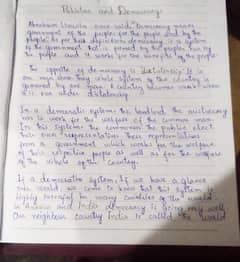 Pakistan and Democracy.
Abraham Lincoln once said "Democracy means
government of the people, for the people and by the
people". As per this definition democracy is a system
of the government that is formed by the peoples, run by
the people and it works for the benefits of the people.
The opposite of democracy is dictatorship. It is
one man show. The whole system of the country is
governed by one man. A country becomes worst when
it is run under dictatorship.
In a democratic system the landlord the aristocracy
has to work for the welfare of the common man.
In this system the common the public elect
their own representative. These representatives
form a government which works for the welfare
of this respective peoples as well as for the welfare
of the whole of the Country.
If a democratic system, If we have a glance
this world, we come to know that this system is
highly successful in many countries of the world.
In America and India democracy is going very well.
Our neighbour country India is called the world